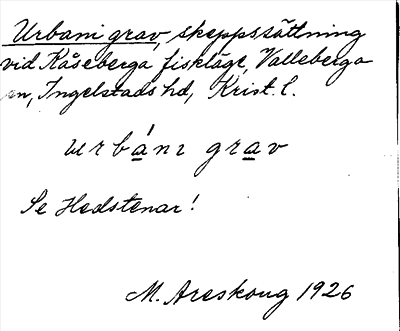 Urbani grav, skeppssättning
vid Kåseberga fiskläge, Valleberga
sn, Ingelstads hd, Krist. l.
urbánı grav
Se Hedstenar!
M. Areskoug 1926